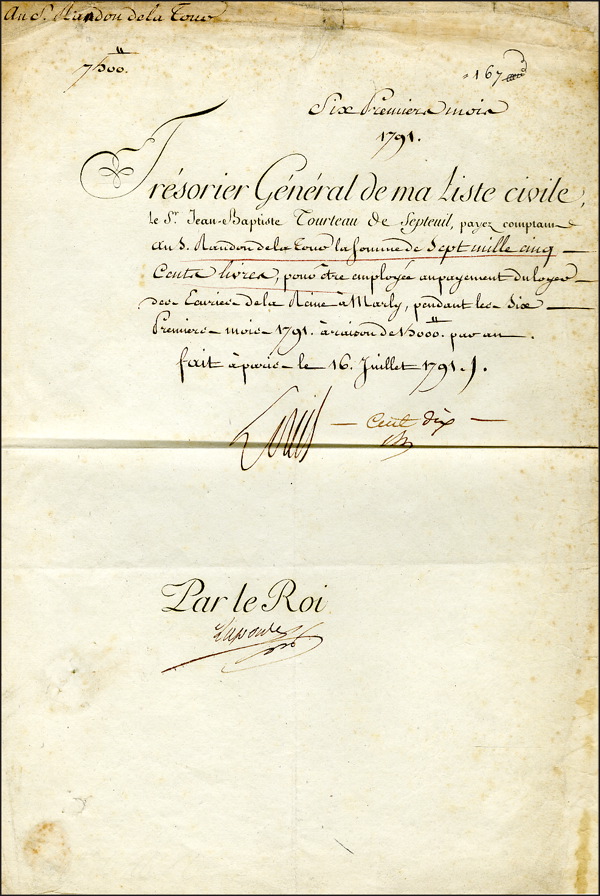 Au S. Randon de la Tour
7500.ᴵᴵ
167
Six Premiers mois
1791.
Trésorier Général de ma Liste civile,
le Sr. Jean-Baptiste Tourteau de Septeuil, payez comptant
au S. Randon de la Tour la somme de Sept mille cinq
Cents livres, pour être employée au payement du loyer
des Ecuries de la Reine à Marly, pendant les Six
Premiers mois 1791. à raison de 15000.ᴵᴵ par an.
fait à paris le 16. Juillet 1791.
Louis
Cent dix
Par le Roi
Laporte